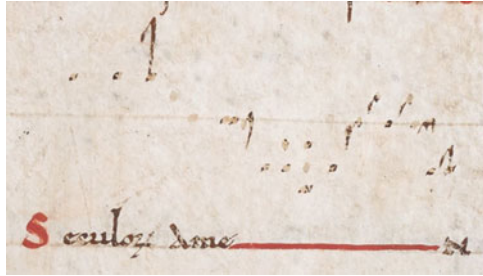 Seculoꝝ Ame n